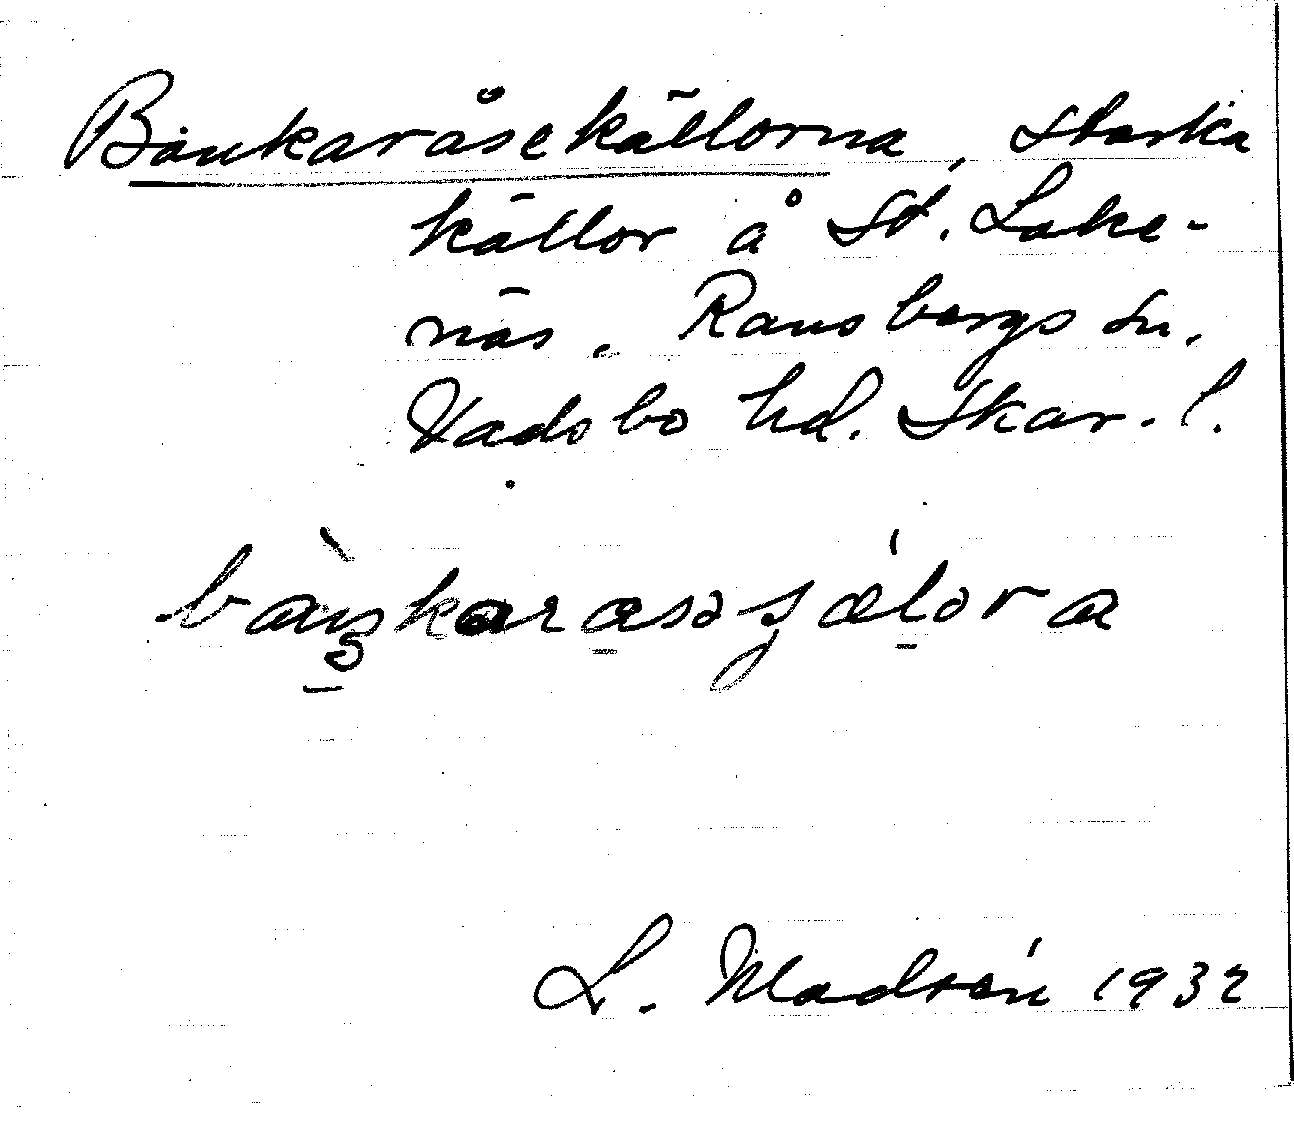 Bankaråsekällorna, starka
källor å St. Lake-
näs, Ransbergs sn.
Vadsbo hd. Skar. l.
L. Madsén 1932